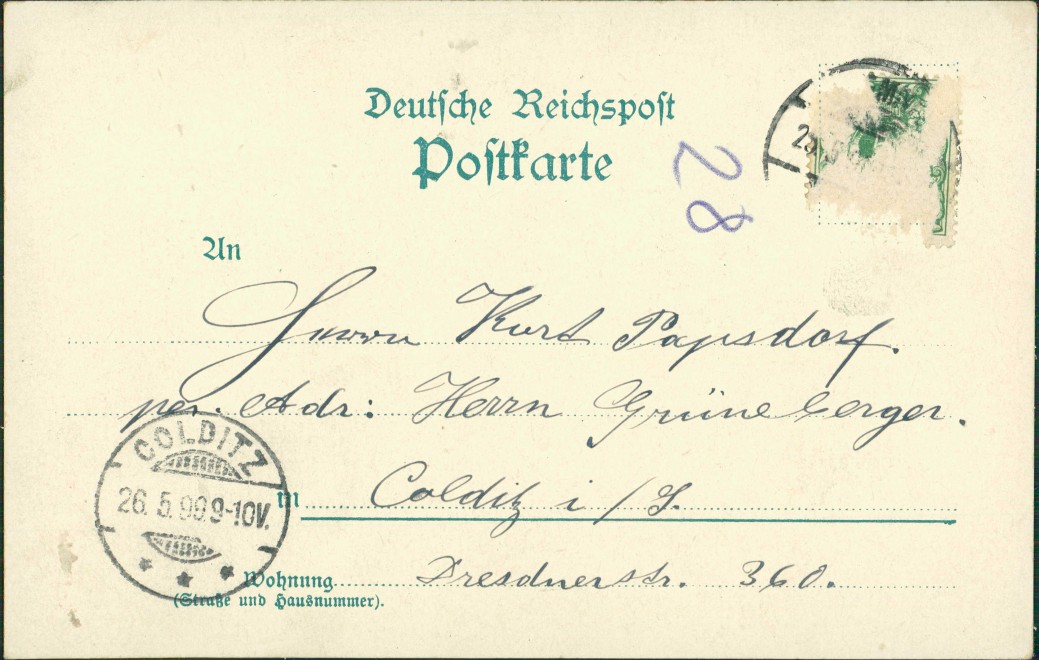 Deutsche Reichspost
Postkarte
28
An
Herrn Kurt Papsdorf.
per. Adr: Herrn Grüneberger.
in Colditz i/S.
COLDITZ
26. 5. 99. 9-10V.
Wohnung Dresdnerstr. 360.
(Straße und Hausnummer).